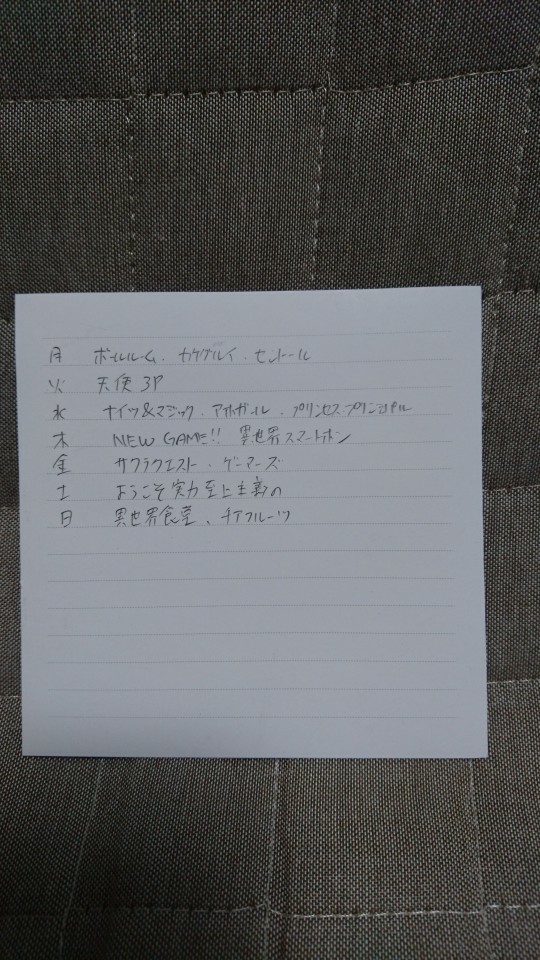 月 ボールルーム．カケグルイ．セントール
火 天使3P
水 ナイツ&マジック．アホガール．プリンセスプリンシパル
木 NEW GAME!! 異世界スマートホン
金 サクラクエスト．ゲーマーズ
土 ようこそ実力至上主義の
日 異世界食堂、ナナフルーツ